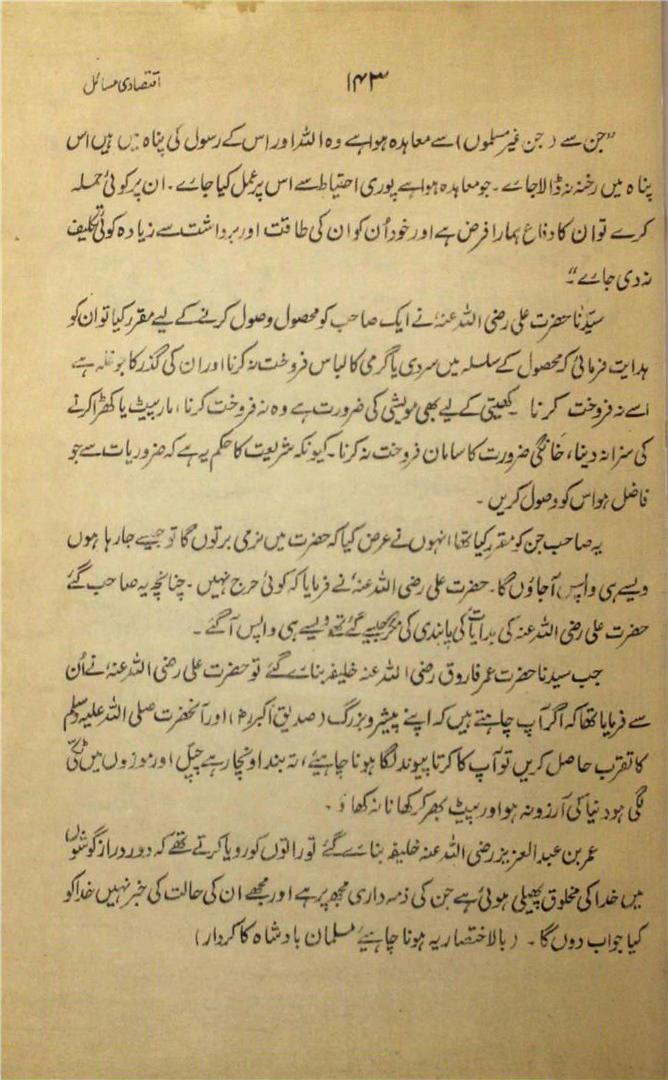 اقتصادی مسائل
۱۴۳
”جن سے (جن غیر مسلموں) سے معاہدہ ہوا ہے وہ اللہ اور اس کے رسول کی پناہ میں ہیں اس
پناہ میں رخنہ نہ ڈالا جائے۔ جو معاہدہ ہوا ہے پوری احتیاط سے اس پر عمل کیا جائے۔ ان پر کوئی حملہ
کرے تو ان کا دفاع ہمارا فرض ہے اور خود اُن کو ان کی طاقت اور برداشت سے زیادہ کوئی تکلیف
نہ دی جائے“۔
سیّدنا حضرت علی رضی اللہ عنہٗ نے ایک صاحب کو محصول وصول کرنے کے لیے مقرر کیا تو ان کو
ہدایت فرمائی کہ محصول کے سلسلہ میں سردی یا گرمی کا لباس فروخت نہ کرنا اور ان کی گذر کا جو غلہ ہے
اسے نہ فروخت کرنا۔ کھیتی کے لیے بھی مویشی کی ضرورت ہے وہ نہ فروخت کرنا، مار پیٹ یا کھڑا کرنے
کی سزا نہ دینا، خانگی ضرورت کا سامان فروخت نہ کرنا۔ کیونکہ شریعت کا حکم یہ ہے کہ ضروریات سے جو
فاضل ہو اس کو وصول کریں۔
یہ صاحب جن کو مقرر کیا تھا انہوں نے عرض کیا کہ حضرت میں نرمی برتوں گا تو جیسے جا رہا ہوں
ویسے ہی واپس آجاؤں گا۔ حضرت علی رضی اللہ عنہٗ نے فرمایا کہ کوئی حرج نہیں۔ چنانچہ یہ صاحب گئے
حضرت علی رضی اللہ عنہ کی ہدایات کی پابندی کی مگر جیسے گئے تھے ویسے ہی واپس آگئے۔
جب سیدنا حضرت عمر فاروق رضی اللہ عنہ خلیفہ بنائے گئے تو حضرت علی رضی اللہ عنہٗ نے اُن
سے فرمایا تھا کہ اگر آپ چاہتے ہیں کہ اپنے پیشرو بزرگ (صدیق اکبرؓ) اور آنحضرت صلی اللہ علیہ وسلم
کا تقرب حاصل کریں تو آپ کا کرتا پیوند لگا ہونا چاہیئے، تہ بند اونچا رہے چپل اور موزوں میں ٹکّی
لگی ہو دنیا کی آرزو نہ ہو اور پیٹ بھر کر کھانا نہ کھاؤ۔
عمر بن عبدالعزیز رضی اللہ عنہ خلیفہ بنائے گئے تو راتوں کو رویا کرتے تھے کہ دور دراز گوشوں
میں خدا کی مخلوق پھیلی ہوئی ہے جن کی ذمہ داری مجھ پر ہے اور مجھے ان کی حالت کی خبر نہیں خدا کو
کیا جواب دوں گا۔ (بالاختصار یہ ہونا چاہیئے مسلمان بادشاہ کا کردار)